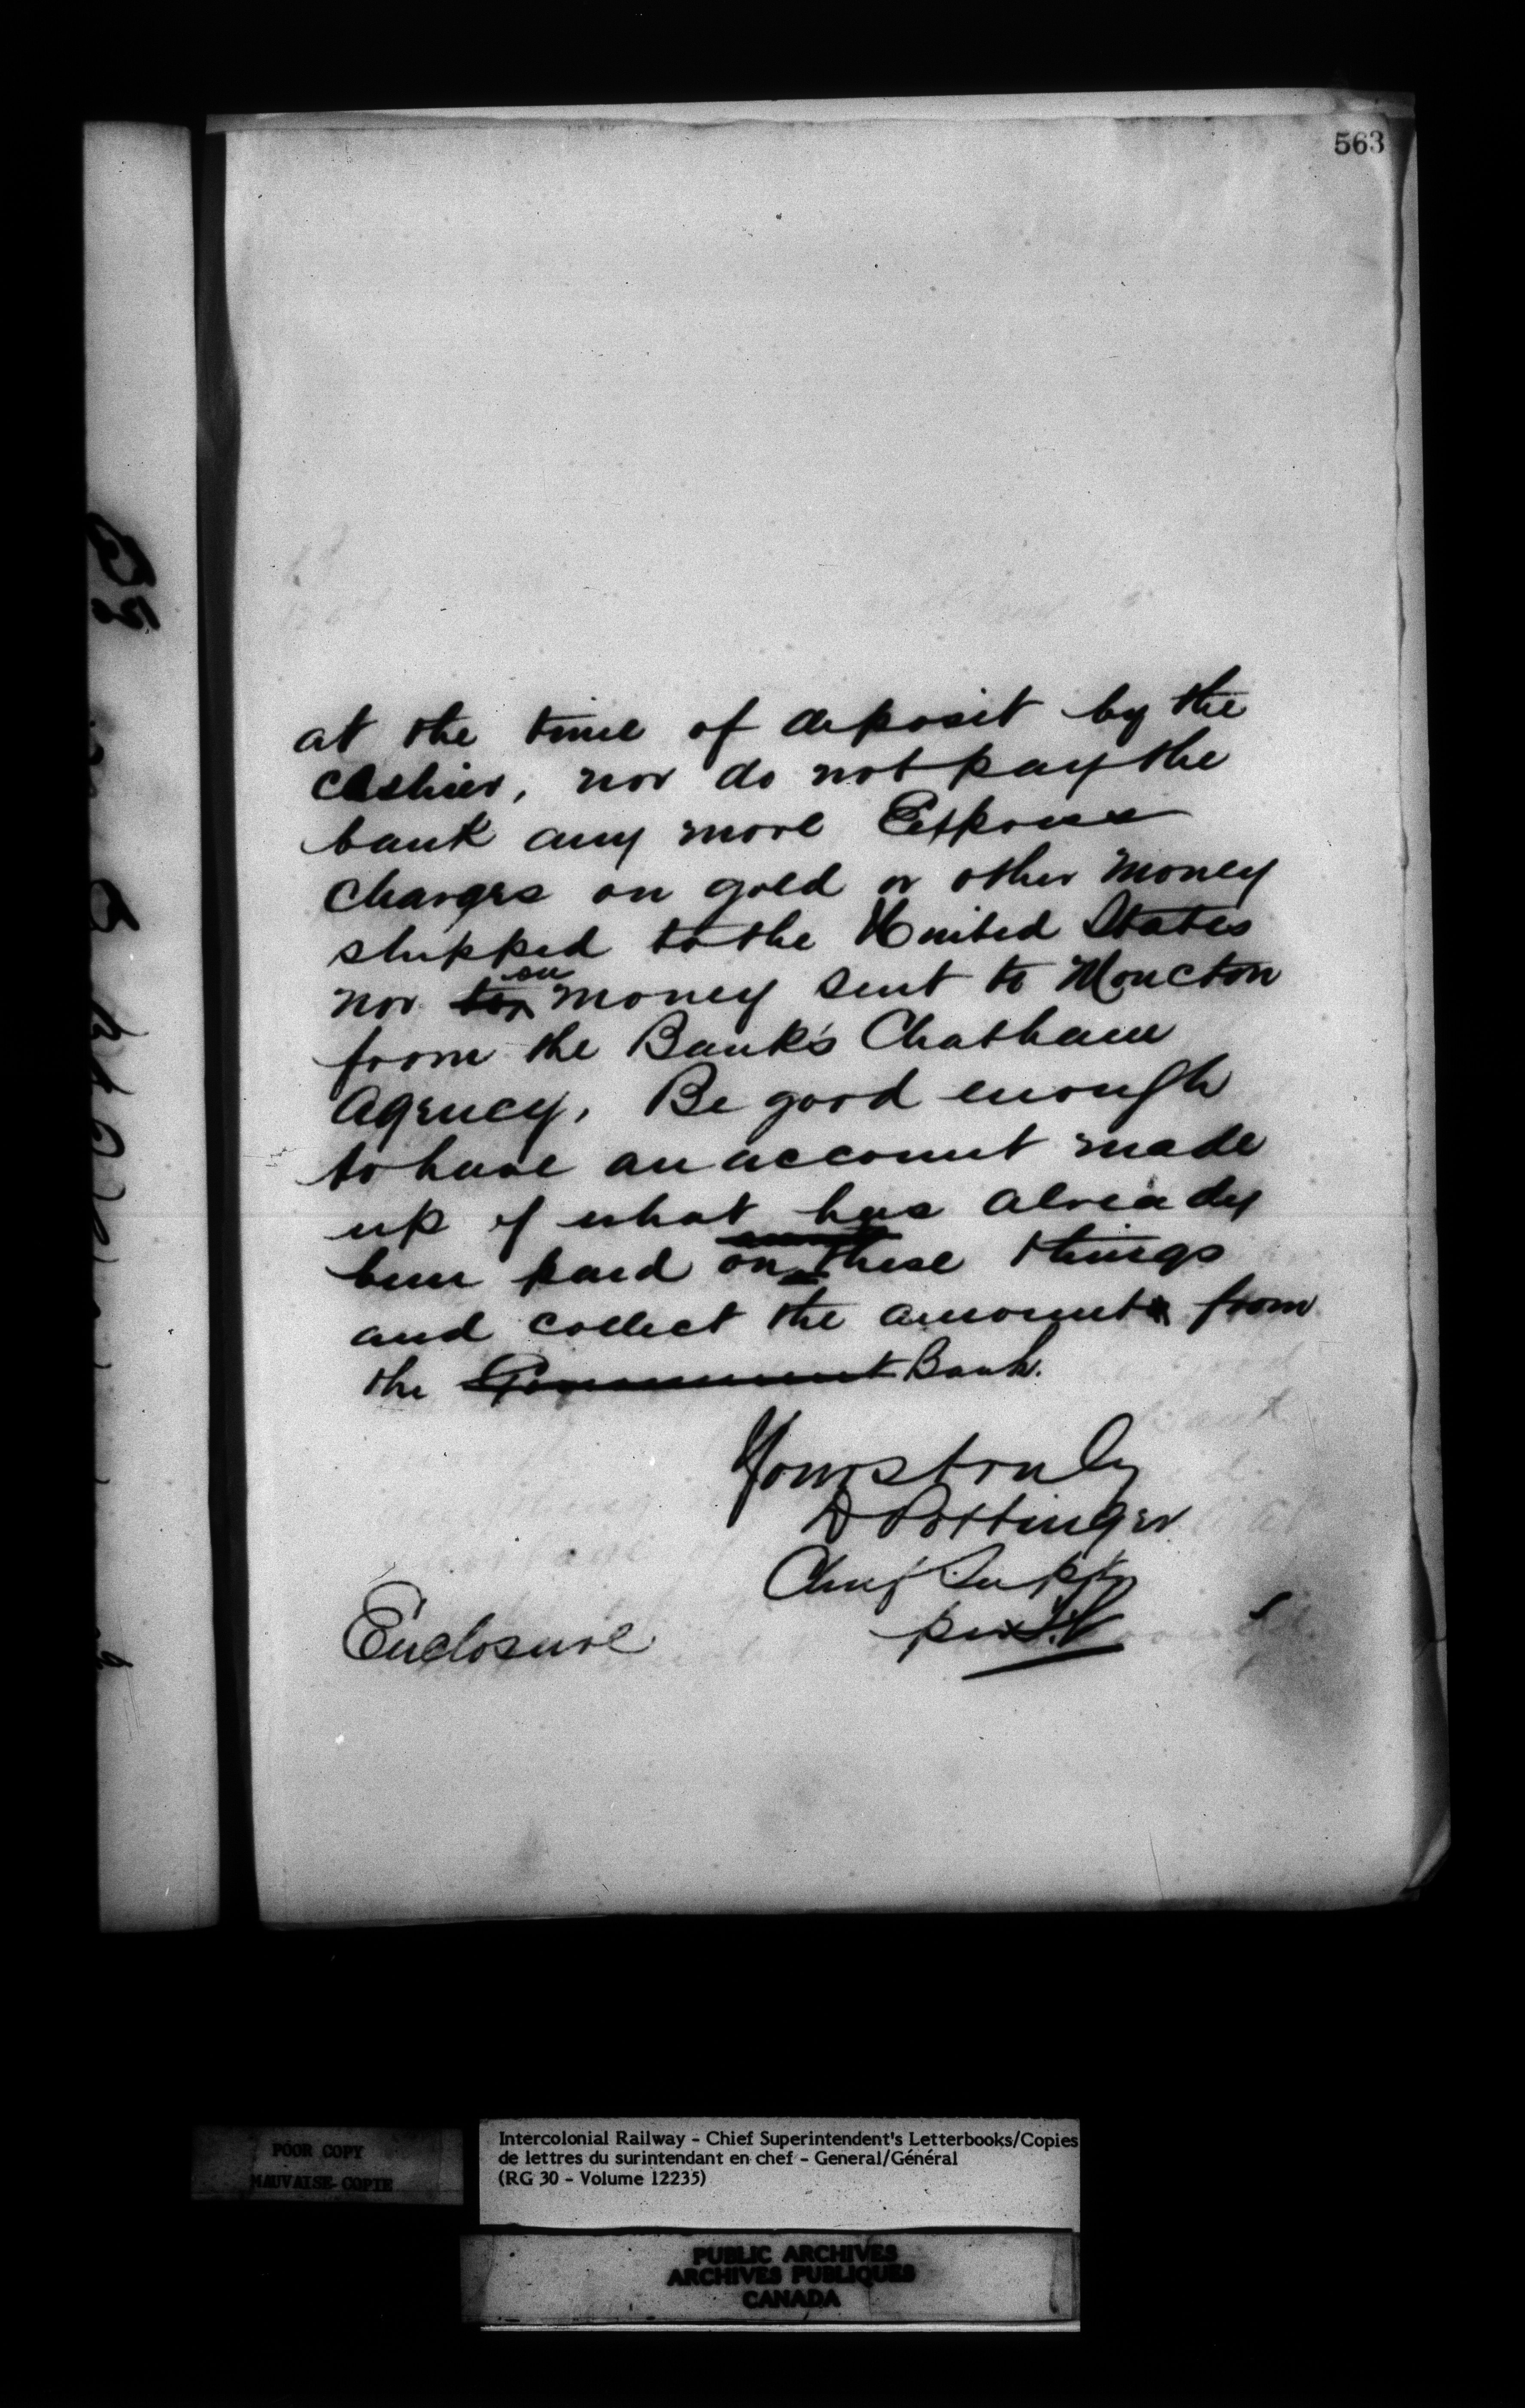 563
at the time of deposit by the
cashier, nor do not pay the
bank any more Express
charges on gold or other money
shipped to the United States
nor on money sent to Moncton
from the Bank's Chatham
Agency. Be good enough
to have an account made
up of what has already
been paid on these things
and collect the amount from
the Government Bank.
Yours truly
D Pottinger
Chief Supt
per
Enclosure
POOR COPY
MAUVAISE COPIE
Intercolonial Railway - Chief Superintendent's Letterbooks/Copies
de lettres du surintendant en chef - General/Général
(RG 30 - Volume 12235)
PUBLIC ARCHIVES
ARCHIVES PUBLIQUES
CANADA